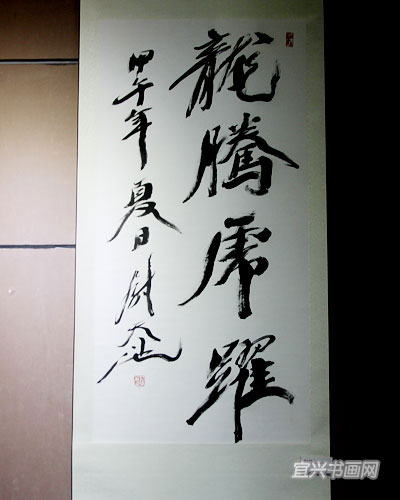 龍騰虎躍
甲午年夏日尉
宜兴书画网